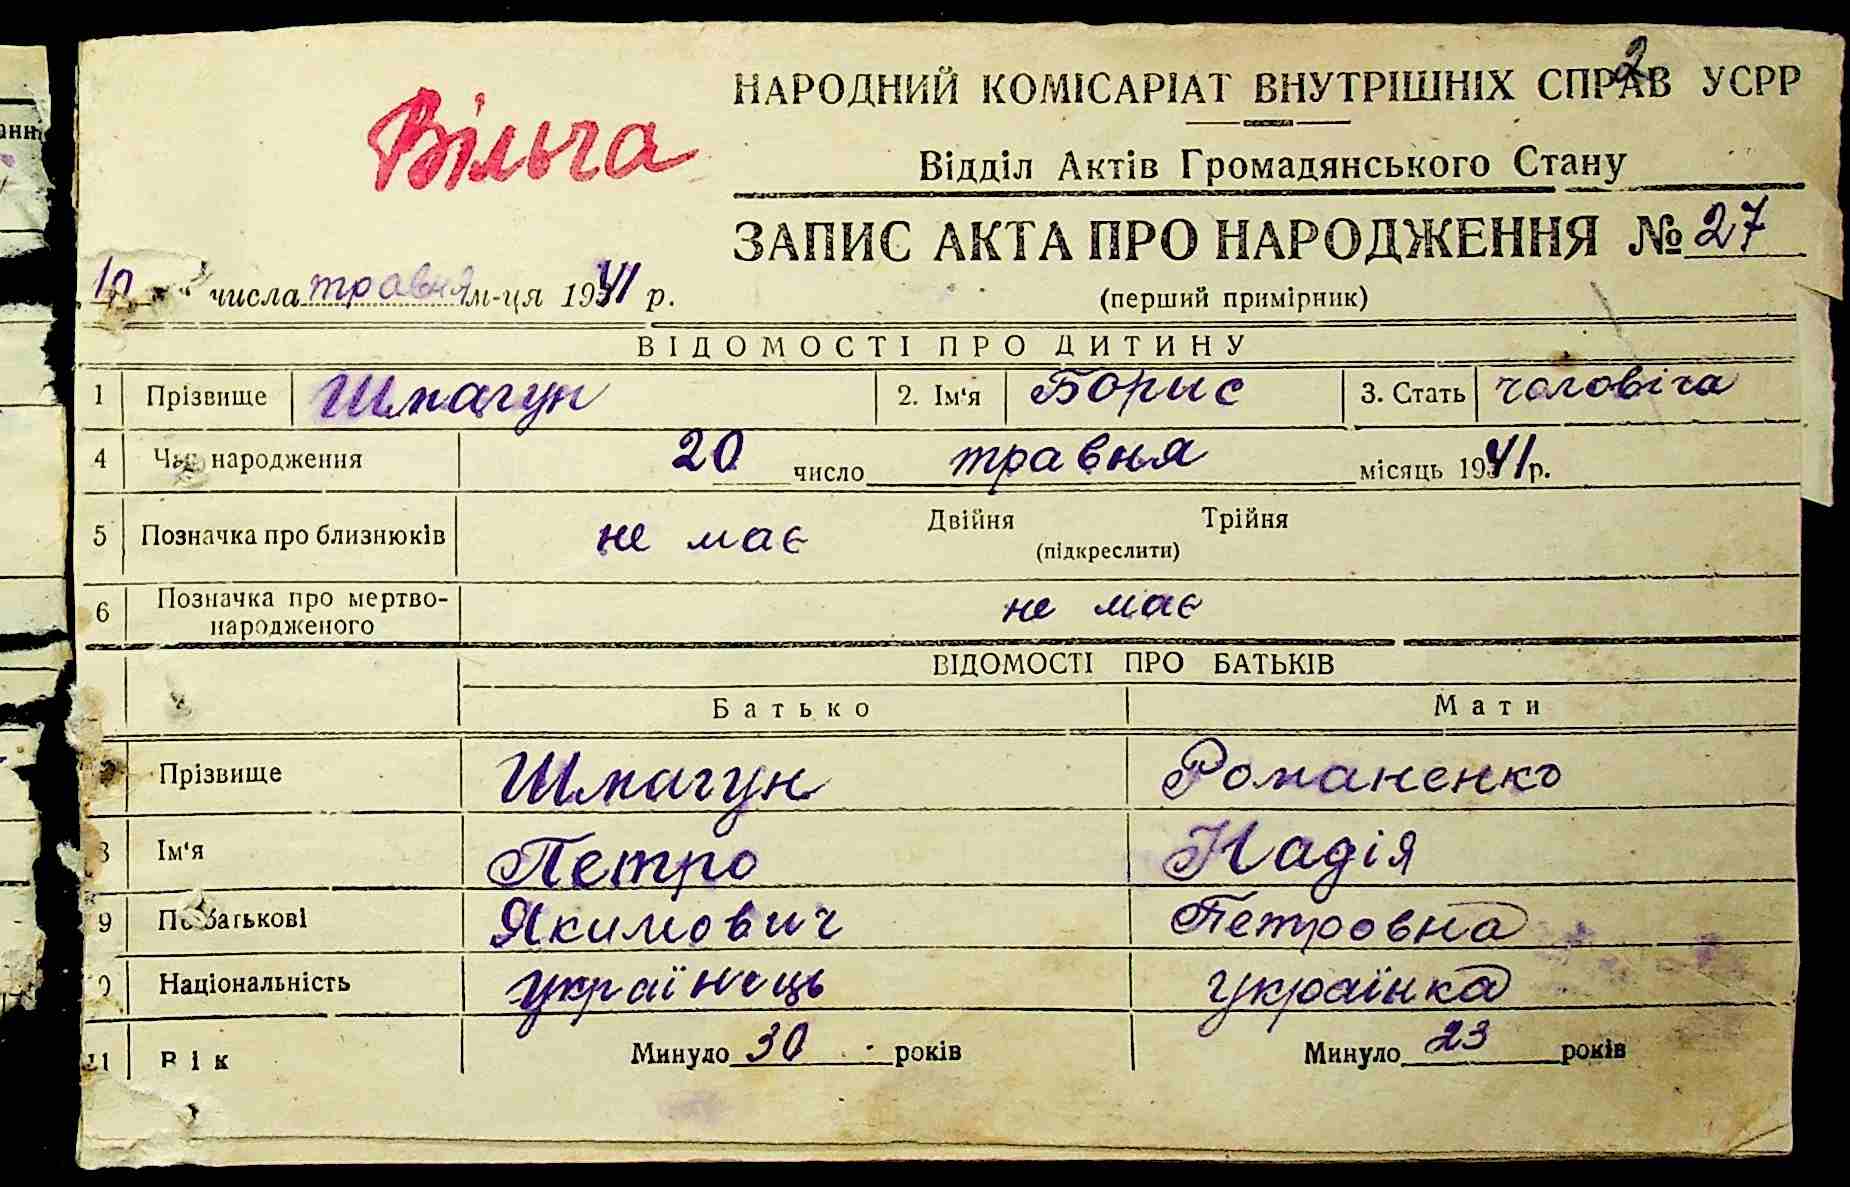 2
НАРОДНИЙ КОМІСАРІАТ ВНУТРІШНІХ СПРАВ УСРР
Вільга
Відділ Актів Громадянського Стану
ЗАПИС АКТА ПРО НАРОДЖЕННЯ № 27
числа травня м-ця 1941 р.
(перший примірник)
ВІДОМОСТІ ПРО ДИТИНУ
1 Прізвище Шмагун 2. Ім'я Борис 3. Стать чоловіча
4 Час народження 20 число травня місяць 1941 р.
5 Позначка про близнюків не має Двійня Трійня
(підкреслити)
6 Позначка про мертво-
народженого не має
ВІДОМОСТІ ПРО БАТЬКІВ
Батько Мати
Прізвище Шмагун Романенко
8 Ім'я Петро Надія
9 По батькові Якимович Петровна
Національність українець українка
11 Вік Минуло 30 років Минуло 23 років